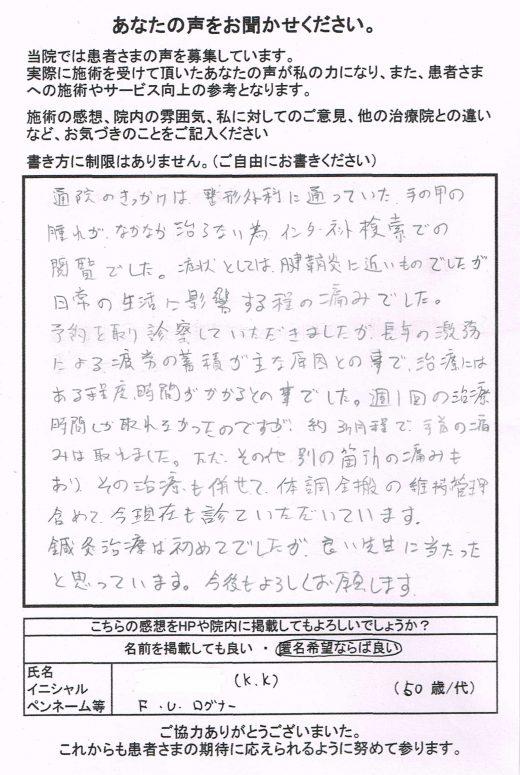 あなたの声をお聞かせください。
当院では患者さまの声を募集しています。
実際に施術を受けて頂いたあなたの声が私の力になり、また、患者さま
への施術やサービス向上の参考となります。
施術の感想、院内の雰囲気、私に対してのご意見、他の治療院との違い
など、お気づきのことをご記入ください
書き方に制限はありません。(ご自由にお書きください)
通院のきっかけは、整形外科に通っていた、手の甲の
腫れが、なかなか治らない為、インターネット検索での
閲覧でした。症状としては、腱鞘炎に近いものでしたが
日常の生活に影響する程の痛みでした。
予約を取り診察していただきましたが、長年の激務
による疲労の蓄積が主な原因との事で、治療には
ある程度、時間がかかるとの事でした。週1回の治療
時間しか取れなかったのですが、約3ヵ月程で、手首の痛
みは取れました。ただ、その他、別の箇所の痛みも
おり、その治療も併せて、体調全搬の維持管理
含めて、今現在も診ていただいています。
鍼灸治療は初めてでしたが、良い先生に当たった
と思っています。今後もよろしくお願します。
こちらの感想をHPや院内に掲載してもよろしいでしょうか？
名前を掲載しても良い ・ 匿名希望ならば良い
氏名
イニシャル
ペンネーム等
(K.K)
F.U.ログナー
(50 歳/代)
ご協力ありがとうございまいた。
これからも患者さまの期待に応えられるように努めて参ります。